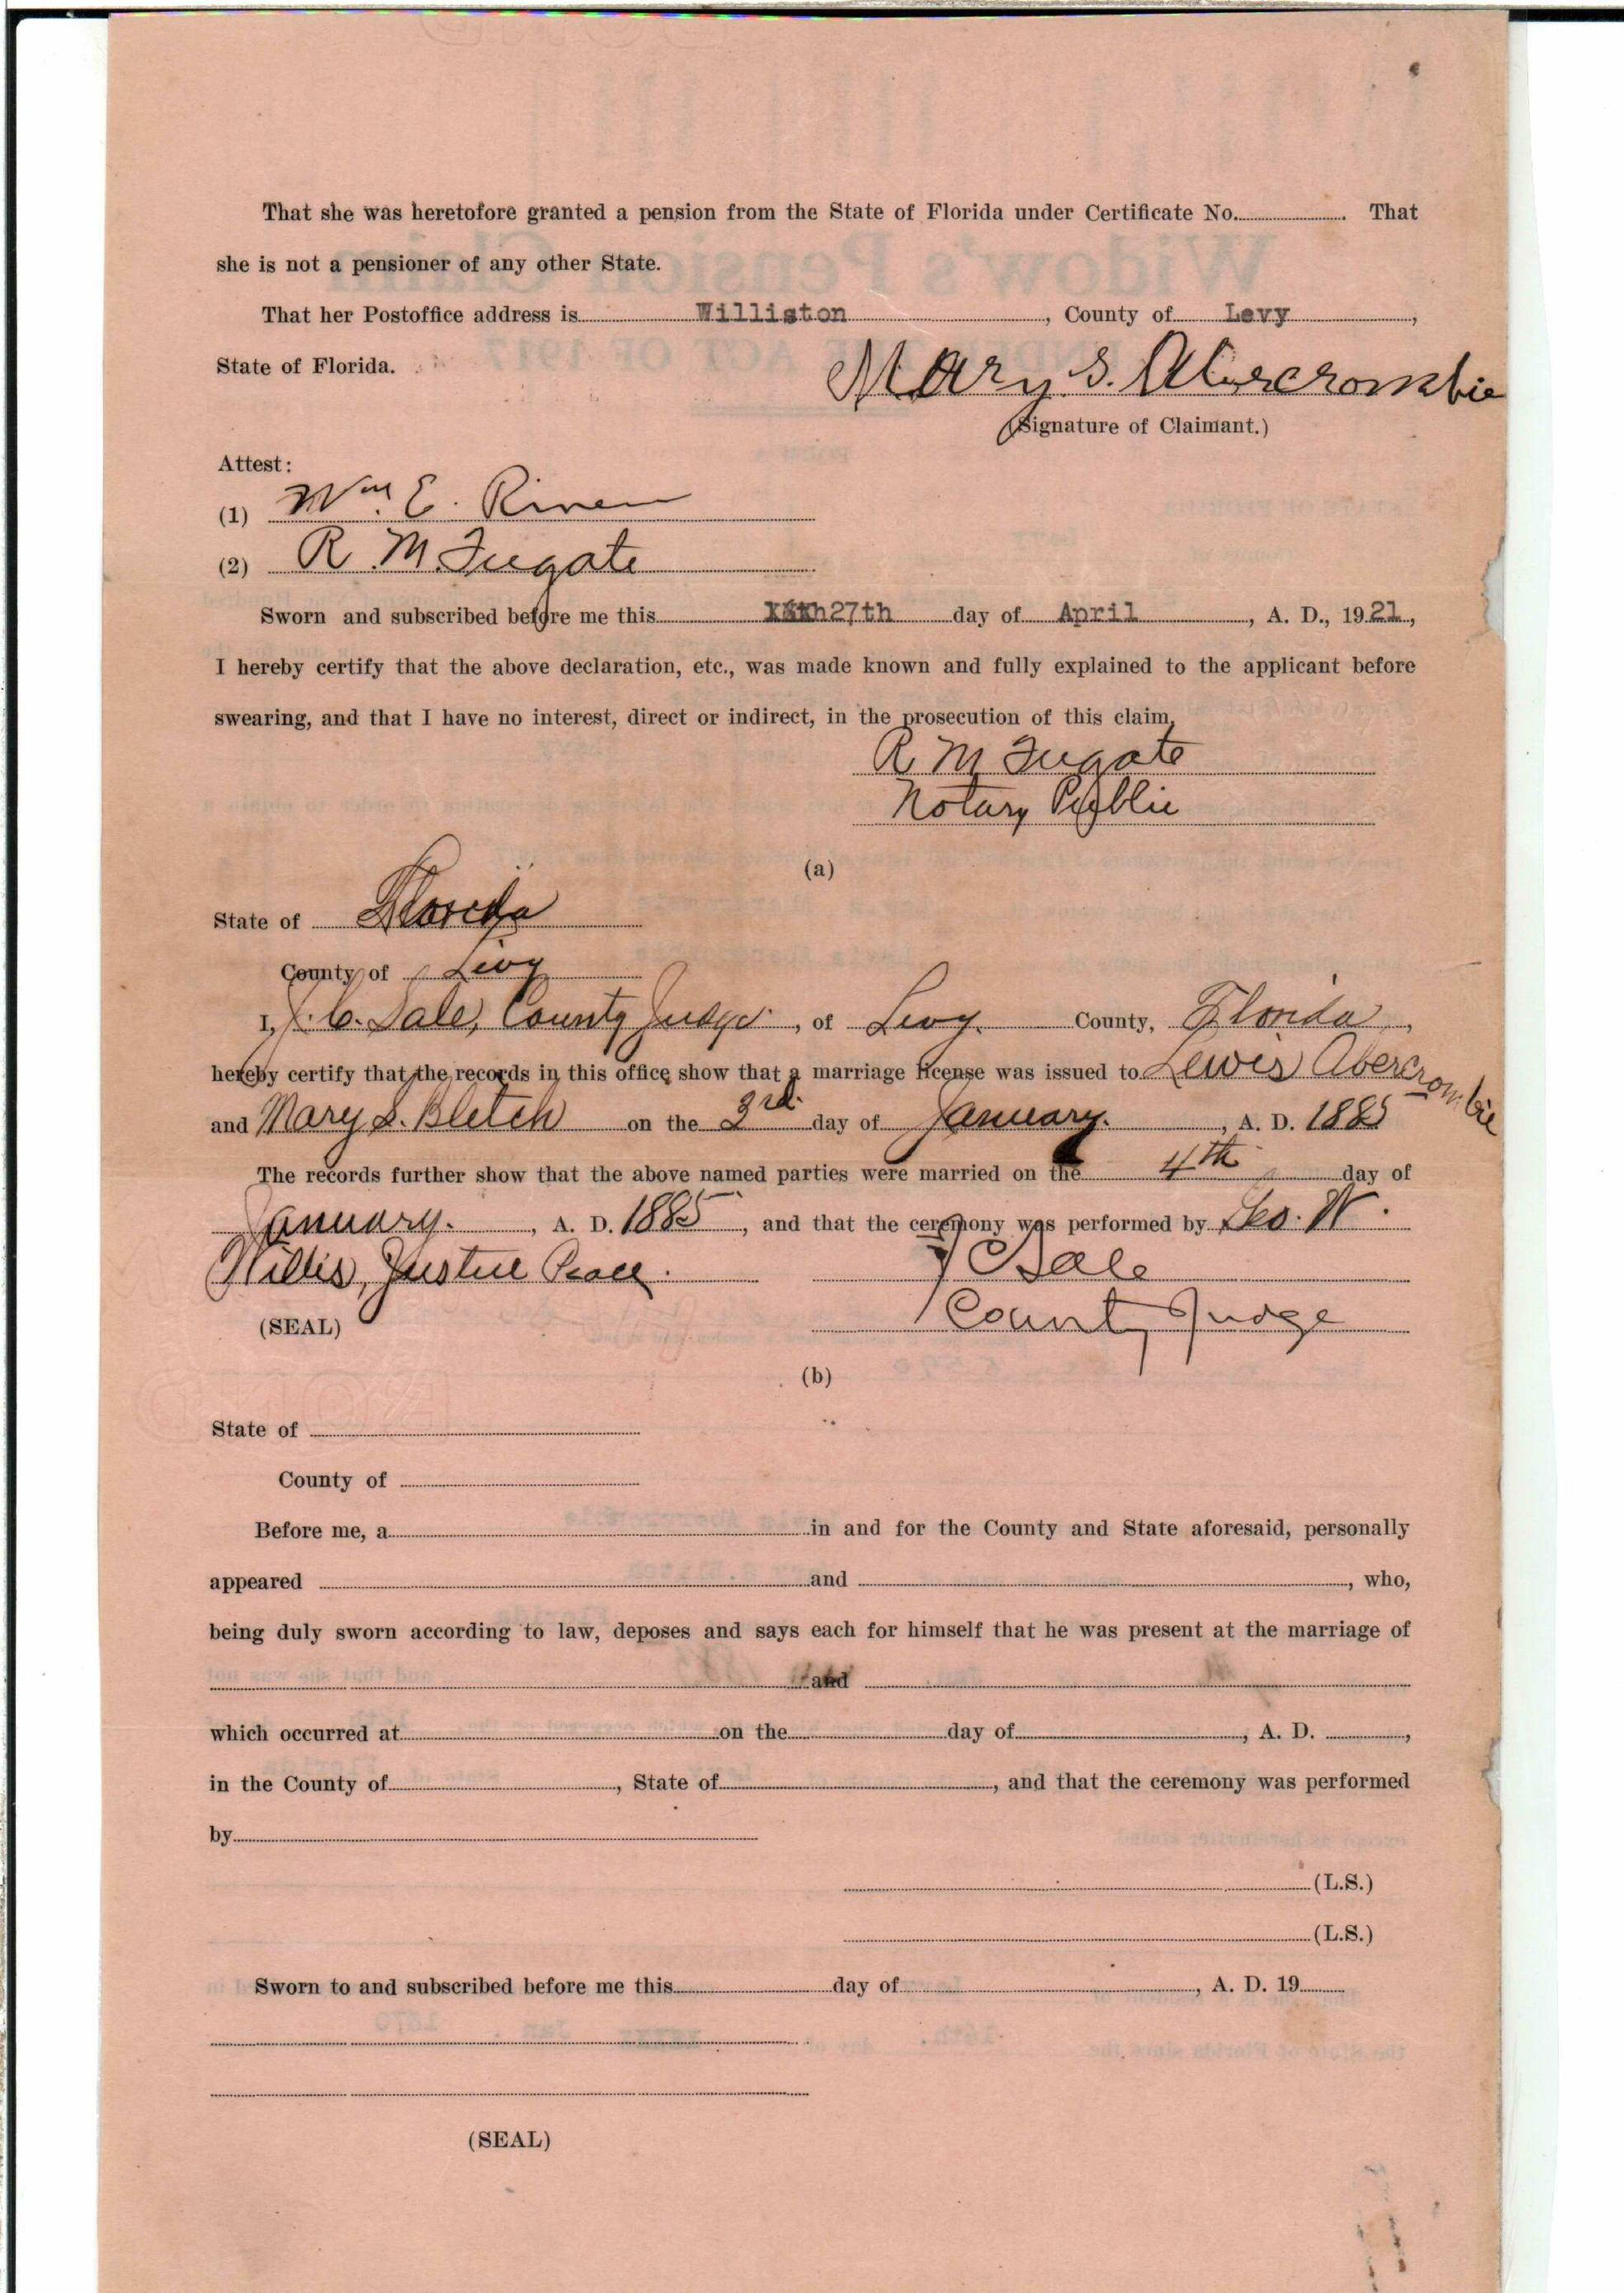 That she was heretofore granted a pension from the State of Florida under Certificate No. . That
she is not a pensioner of any other State.
That her Postoffice address is Williston , County of Levy ,
State of Florida.
Mary S. Abercrombie
(Signature of Claimant.)
Attest:
(1) Wm. E. 
(2) R. M. Fugate
Sworn and subscribed before me this 27th day of April , A. D., 1921 ,
I hereby certify that the above declaration, etc., was made known and fully explained to the applicant before
swearing, and that I have no interest, direct or indirect, in the prosecution of this claim,
R M Fugate
Notary Public
(a)
State of Florida
County of Levy
I, J. C. Sale, County Judge , of Levy. County, Florida ,
hereby certify that the records in this office show that a marriage license was issued to Lewis Abercrombie
and Mary S. Blitch on the 3rd. day of January. , A. D. 1885
The records further show that the above named parties were married on the 4th day of
January. , A. D. 1885 , and that the ceremony was performed by Geo. W.
Willis, Justice Peace.
J C Sale
(SEAL) County Judge
(b)
State of
County of
Before me, a in and for the County and State aforesaid, personally
appeared and , who,
being duly sworn according to law, deposes and says each for himself that he was present at the marriage of
and
which occurred at on the day of , A. D. ,
in the County of , State of , and that the ceremony was performed
by
(L.S.)
(L.S.)
Sworn to and subscribed before me this day of , A. D. 19
(SEAL)